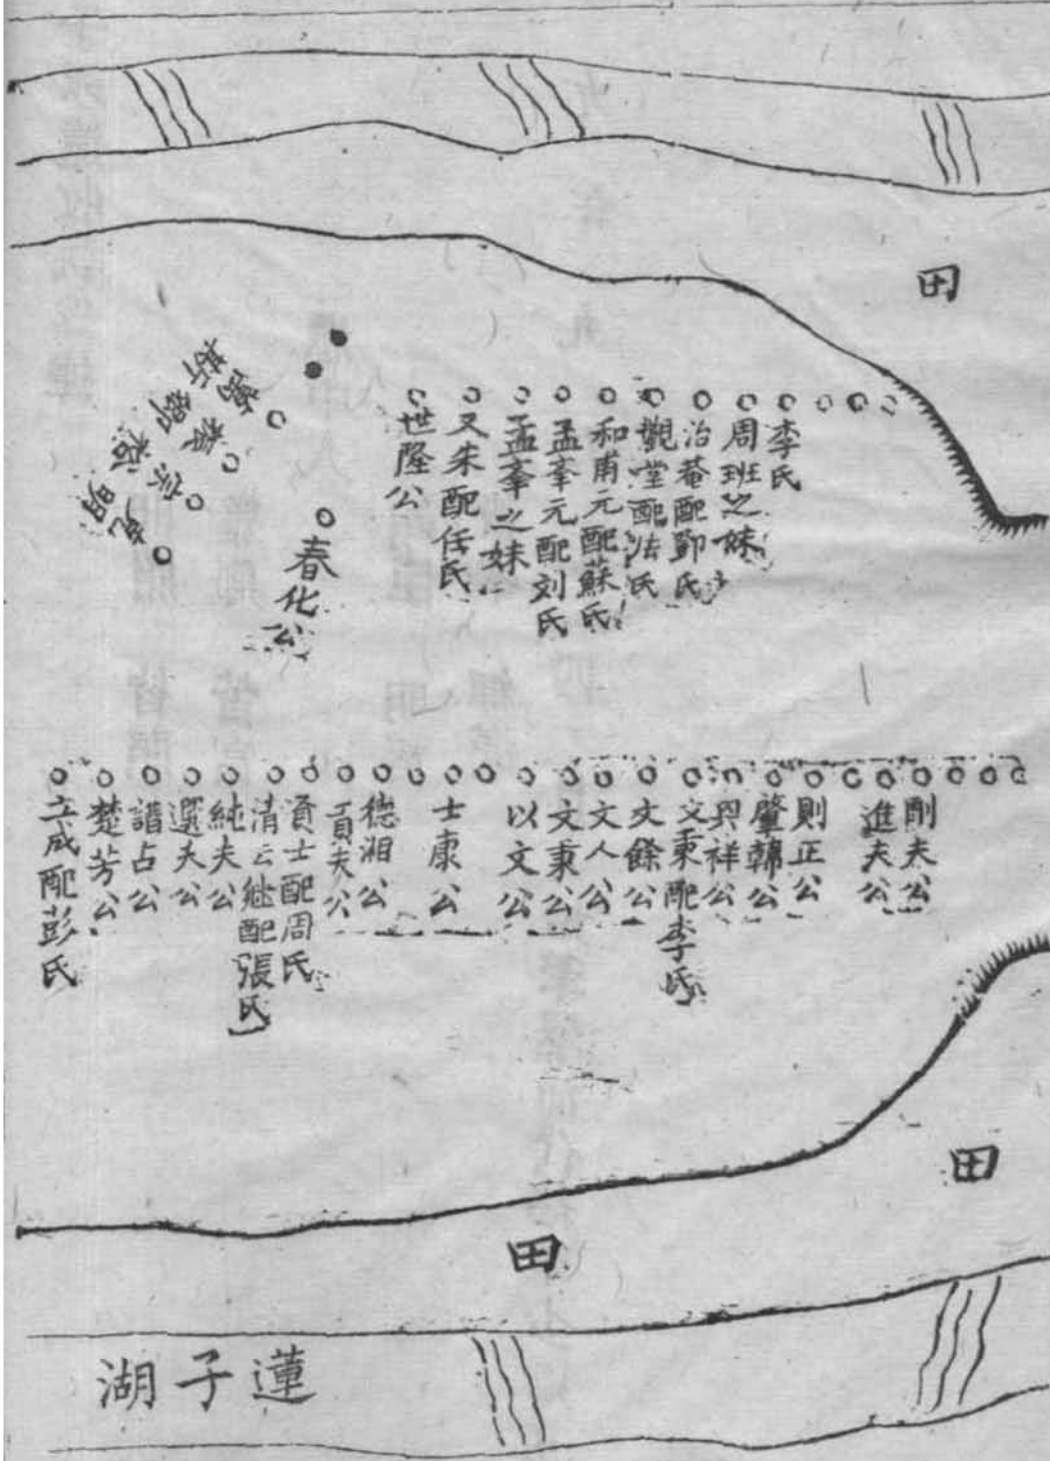 田
李氏
周班之妹
治菴配鄧氏
觀堂配法氏
和甫元配蘇氏
孟峯元配刘氏
孟峯之妹
又朱配任氏
世隆公
春化公
剛夫公
進夫公
則正公
肇韓公
興祥公
文秉配李氏
文餘公
文人公
文秉公
以文公
士康公
德湘公
貢夫公
貢士配周氏
清云継配張氏
純夫公
選夫公
譜占公
楚芳公
立成配彭氏
田
田
蓮子湖